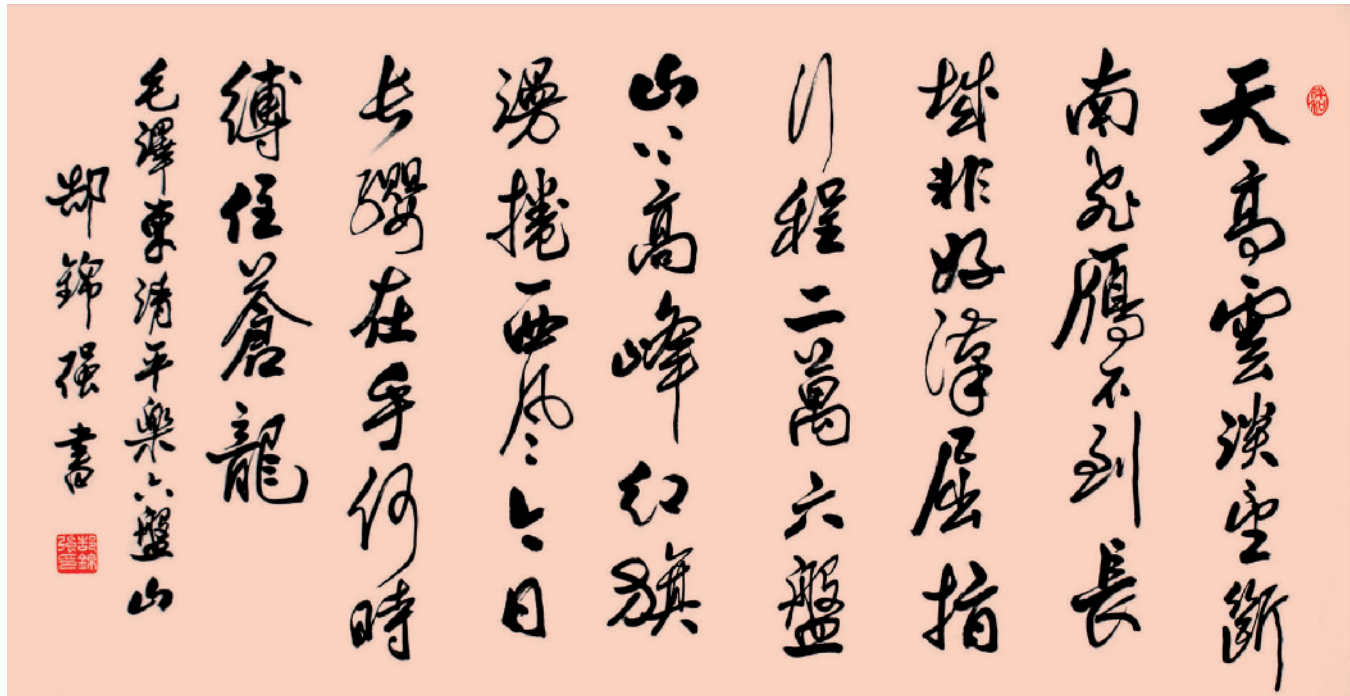 天高雲淡望斷
南飛鴈不到長
城非好漢屈指
行程二萬六盤
山上高峰紅旗
漫捲西風今日
长纓在手何時
縛住蒼龍
毛澤東清平樂六盤山
郜錦强書
郜錦强印